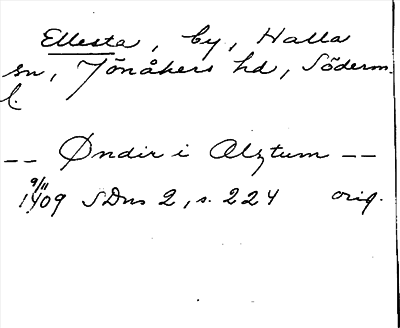 Ellesta, by, Halla
sn, Jönåkers hd, Söderm.
l.
-- Øndir i Alztum --
9/11
1409 SDns 2, s. 224 orig.